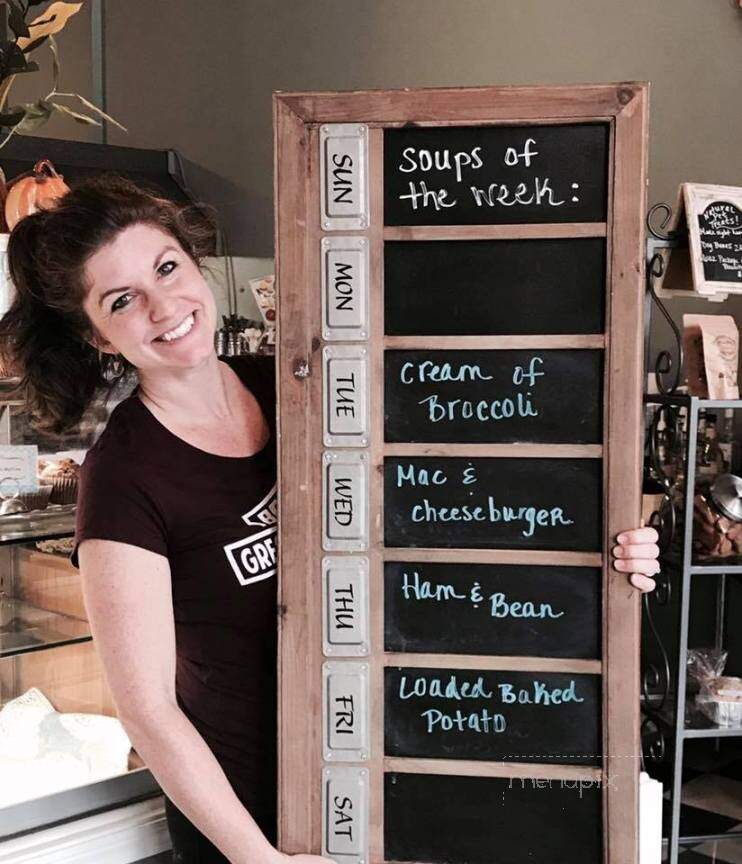 SUN
soups of
the week:
MON
TUE
cream of
Broccoli
WED
Mac &
cheeseburger
THU
Ham & Bean
FRI
Loaded Baked
Potato
SAT
Natural
Pet
Treats!
GRE
menupix